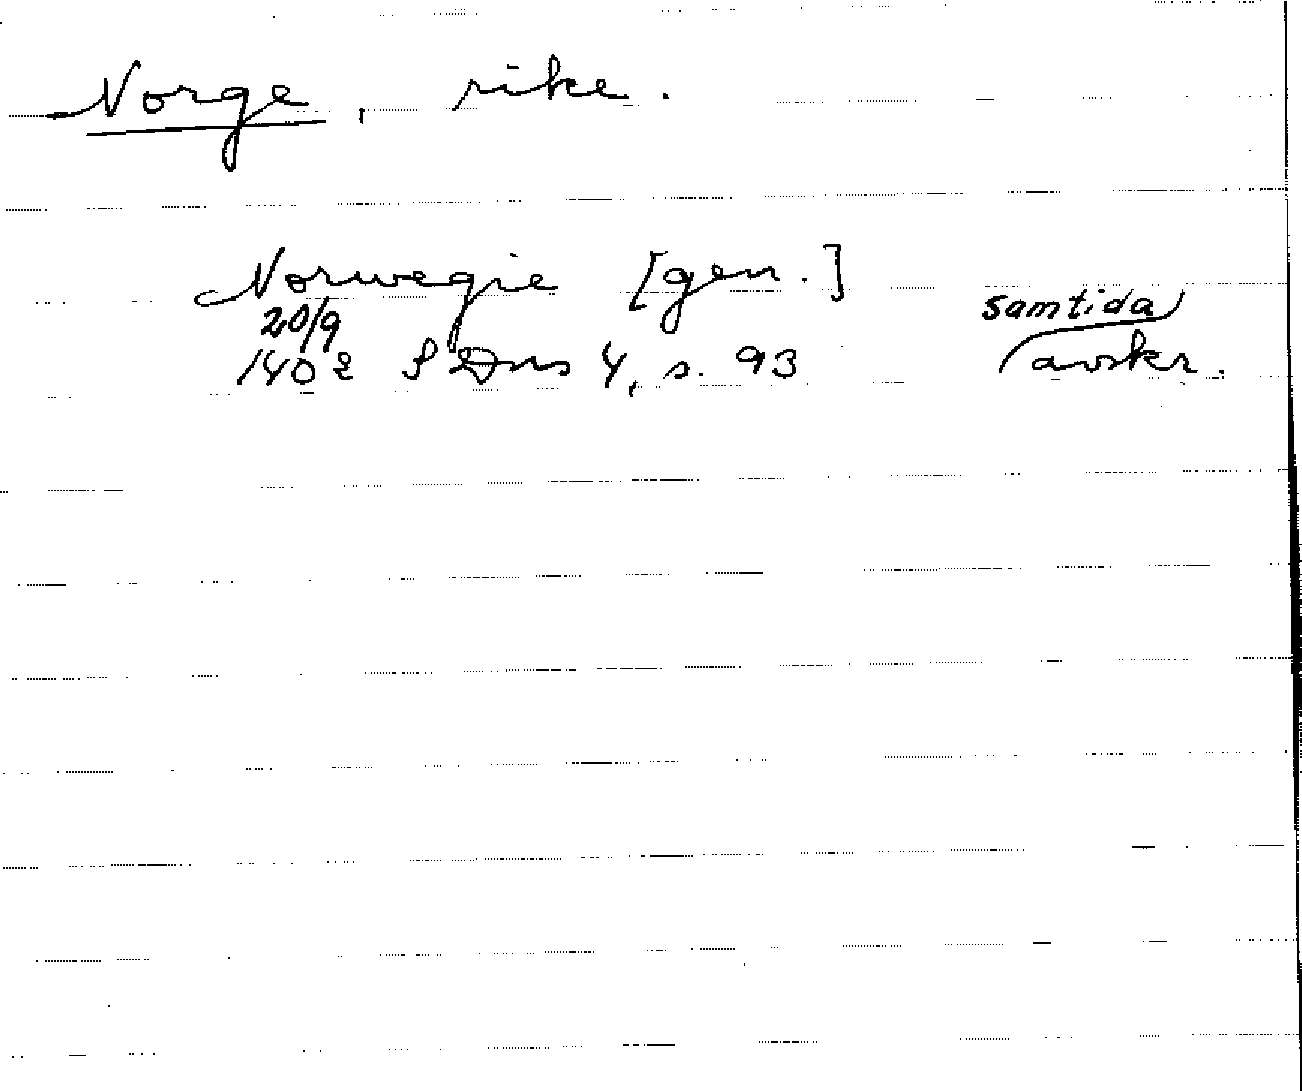 Norge, rike.
Norwegie [gen.]
20/9 samtida
1402 SDns 4, s. 93 avskr.